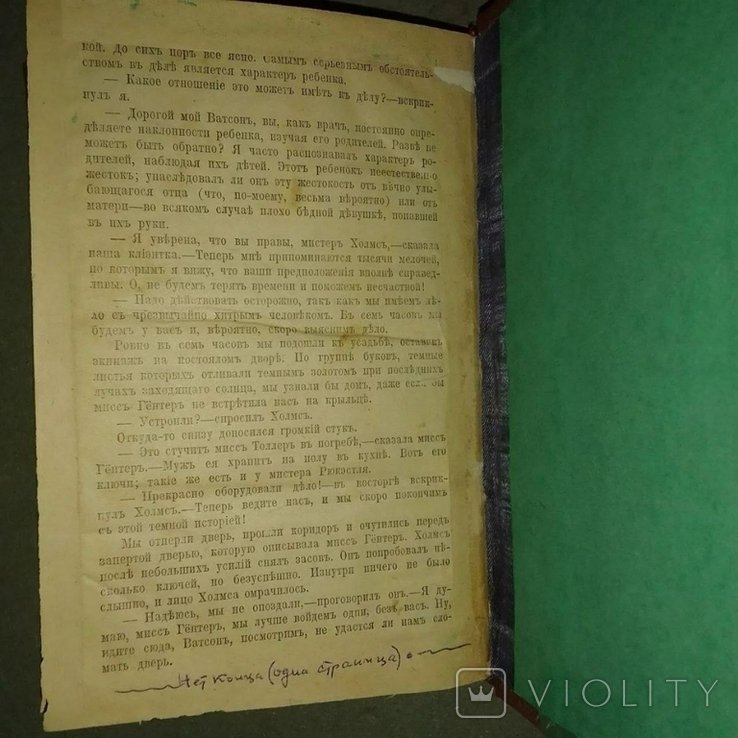 кой. До сихъ поръ все ясно. Самымъ серьезнымъ обстоятель-
ствомъ въ дѣлѣ является характеръ ребенка.
— Какое отношеніе это можетъ имѣть къ дѣлу?—вскрик-
нулъ я.
— Дорогой мой Ватсонъ, вы, какъ врачъ, постоянно опре-
дѣляете наклонности ребенка, изучая его родителей. Развѣ не
можетъ быть обратно? Я часто распознавалъ характеръ ро-
дителей, наблюдая ихъ дѣтей. Этотъ ребенокъ неестественно
жестокъ; унаслѣдовалъ ли онъ эту жестокость отъ вѣчно улы-
бающагося отца (что, по-моему, весьма вѣроятно) или отъ
матери—во всякомъ случаѣ плохо бѣдной дѣвушкѣ, попавшей
въ ихъ руки.
— Я увѣрена, что вы правы, мистеръ Холмсъ,—сказала
наша кліэнтка.—Теперь мнѣ припоминаются тысячи мелочей,
по которымъ я вижу, что ваши предположенія вполнѣ справед-
ливы. О, не будемъ терять времени и поможемъ несчастной!
— Надо дѣйствовать осторожно, такъ какъ мы имѣемъ дѣ-
ло съ чрезвычайно хитрымъ человѣкомъ. Въ семь часовъ мы
будемъ у васъ и, вѣроятно, скоро выяснимъ дѣло.
Ровно въ семь часовъ мы подошли къ усадьбѣ, оставивъ
экипажъ на постояломъ дворѣ. По группѣ буковъ, темные
листья которыхъ отливали темнымъ золотомъ при послѣднихъ
лучахъ заходящаго солнца, мы узнали бы домъ, даже если бы
миссъ Гёнтеръ не встрѣтила насъ на крыльцѣ.
— Устроили?—спросилъ Холмсъ.
Откуда-то снизу доносился громкій стукъ.
— Это стучитъ миссъ Толлеръ въ погребѣ,—сказала миссъ
Гёнтеръ.—Мужъ ея храпитъ на полу въ кухнѣ. Вотъ его
ключи; такіе же есть и у мистера Рюкэстля.
— Прекрасно оборудовали дѣло!—въ восторгѣ вскрик-
нулъ Холмсъ.—Теперь ведите насъ, и мы скоро покончимъ
съ этой темной исторіей!
Мы отперли дверь, прошли коридоръ и очутились передъ
запертой дверью, которую описывала миссъ Гёнтеръ. Холмсъ
послѣ небольшихъ усилій снялъ засовъ. Онъ попробовалъ нѣ-
сколько ключей, но безуспѣшно. Изнутри ничего не было
слышно, и лицо Холмса омрачилось.
— Надѣюсь, мы не опоздали,—проговорилъ онъ.—Я ду-
маю, миссъ Гёнтеръ, мы лучше войдемъ одни, безъ васъ. Ну,
идите сюда, Ватсонъ, посмотримъ, не удастся ли намъ сло-
мать дверь.
Нет конца (одна страница)
VIOLITY